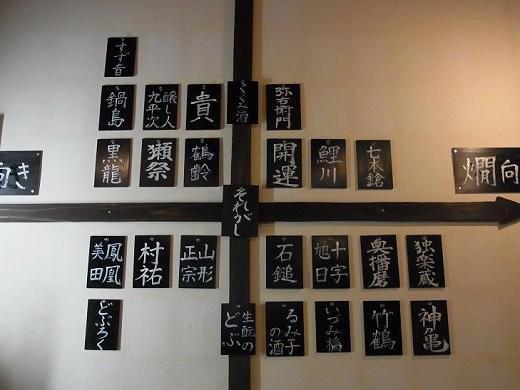 すず音
鍋島
醸し人
九平次
貴
くくみ酒
弥右衛門
黒龍
獺祭
鶴齢
開運
鯉川
七本鎗
向き
燗向
それがし
鳳凰
美田
村祐
山形
正宗
石鎚
十字
旭日
奥播磨
独楽蔵
どぶろく
生酛の
どぶ
るみ子
の酒
いづみ橋
竹鶴
神亀